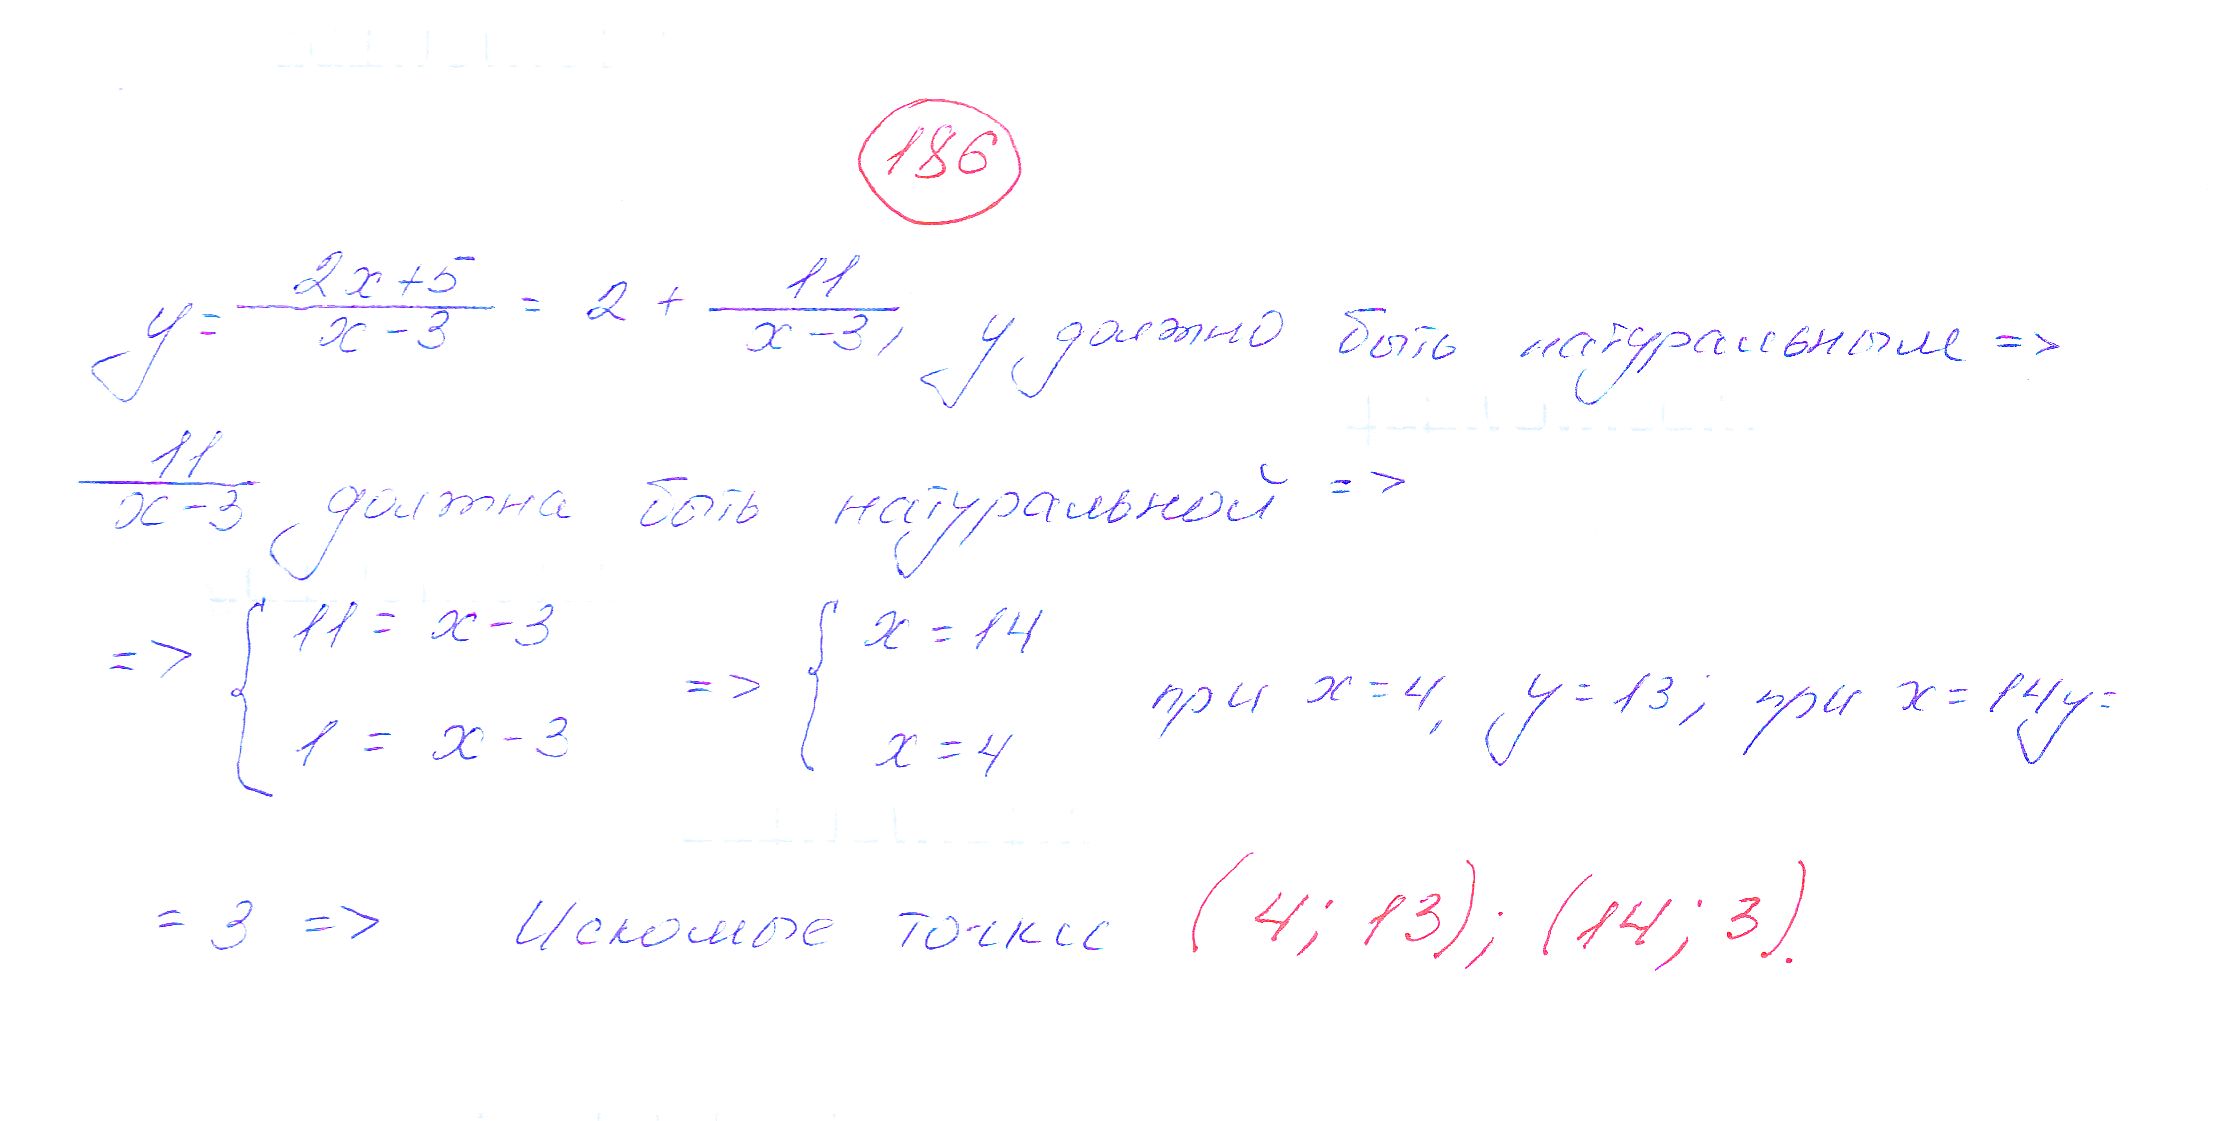 186
y = (2x+5)/(x-3) = 2 + 11/(x-3), y должно быть натуральным =>
11/(x-3) должна быть натуральной =>
=> { 11 = x-3 ; 1 = x-3 => { x=14 ; x=4 при x=4, y=13; при x=14 y=
= 3 => Искомые точки (4; 13); (14; 3).